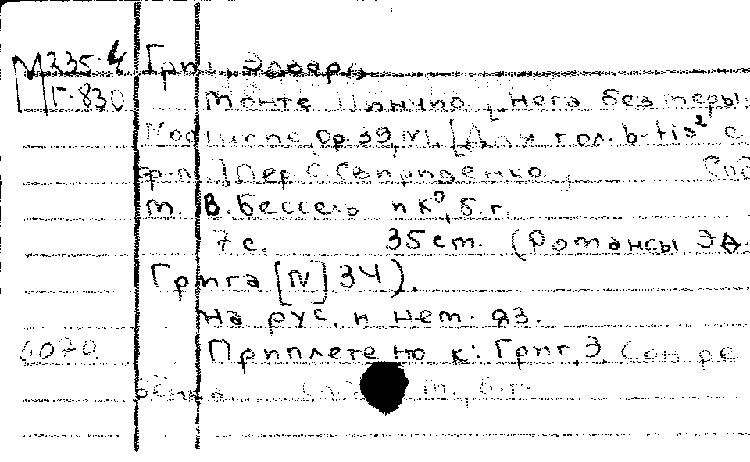 М335.4 Григ, Эдвард
Г-830
Монте Пинчио [Нега без меры:
Nocturne, Op. 39, N1. [Для гол. b-fis² с
ф-п.] Пер. С. Свириденко, Спб
м. В. Бессель и К⁰, б.г.
7 с. 35 см. (Романсы Эд.
Грига [N] 34).
На рус. и нем. яз.
6070 Приплетено к: Григ, Э. Сон ре
бенка м., б.г.